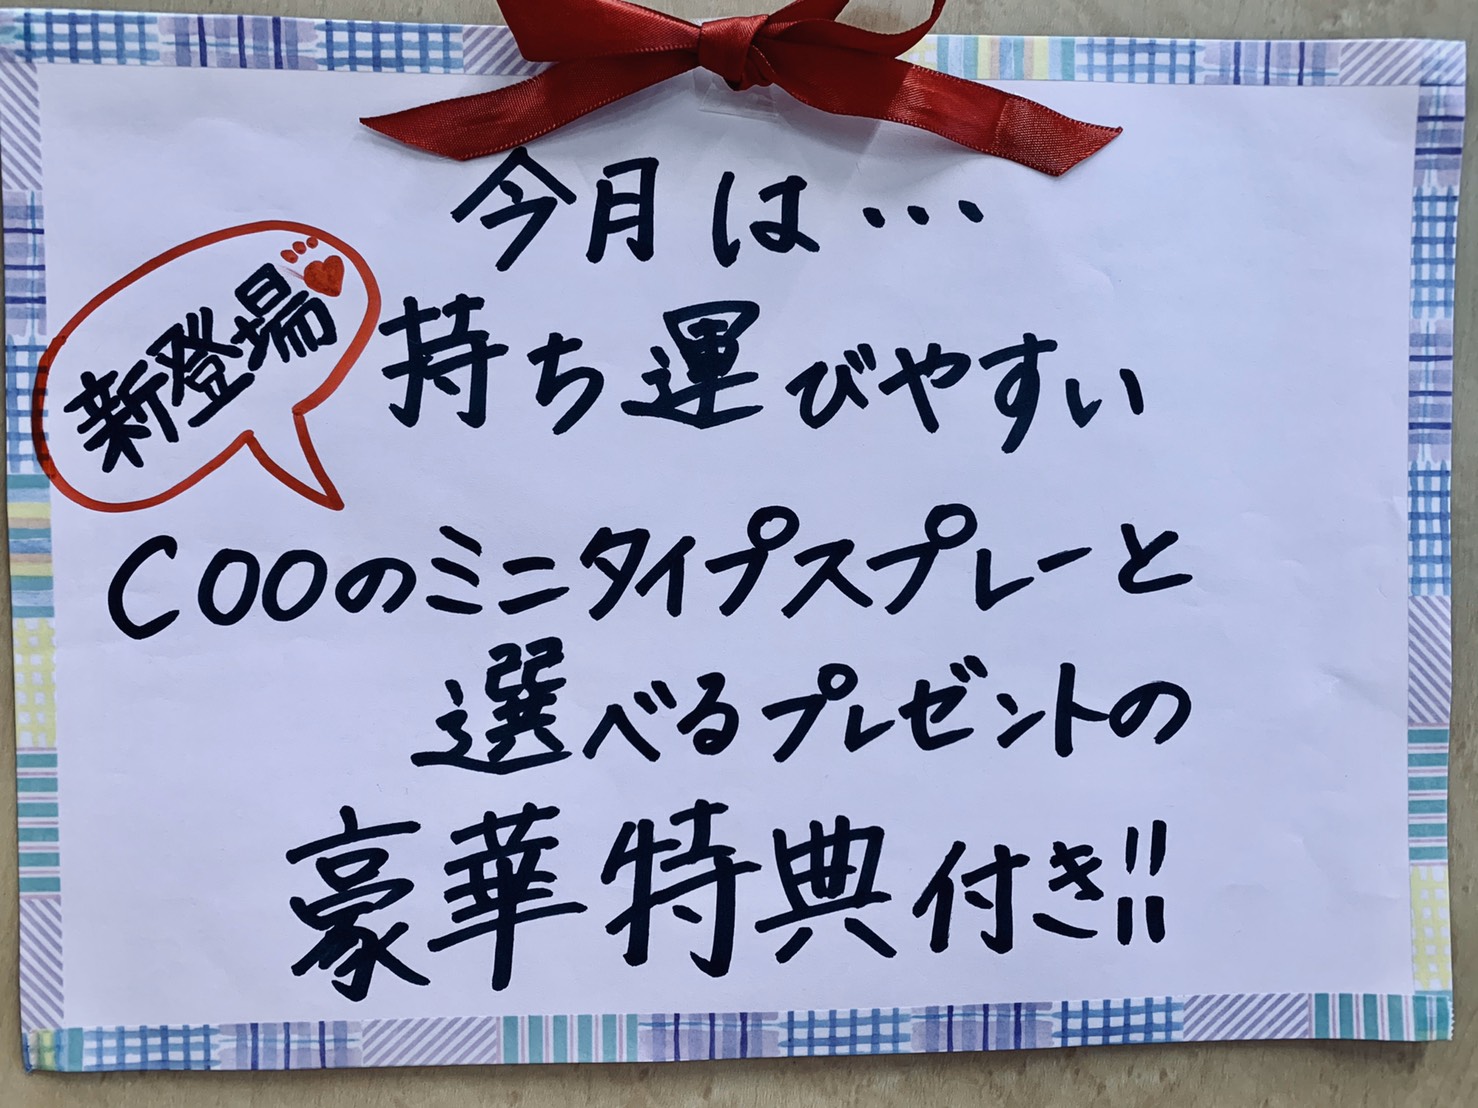 今月は…
新登場
持ち運びやすい
COOのミニタイプスプレーと
選べるプレゼントの
豪華特典付き!!